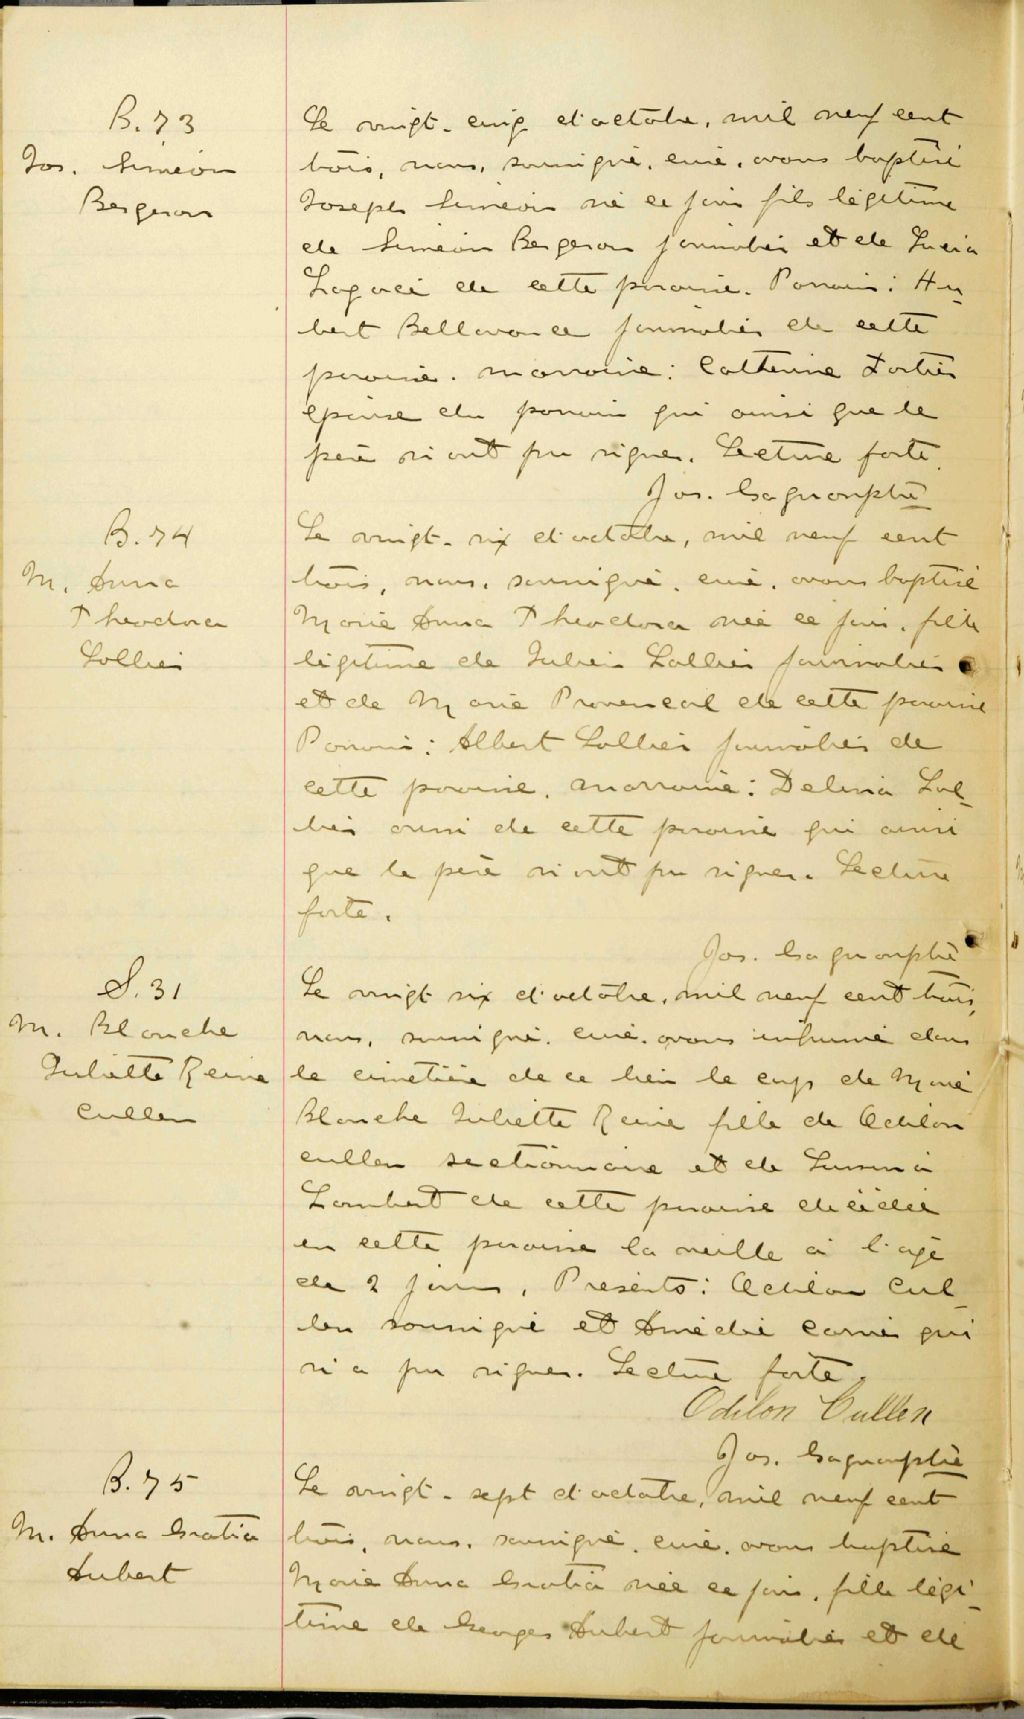 B. 73
Jos. Siméon
Bergeron
Le vingt-cinq d'octobre, mil neuf cent
trois, nous, soussigné, curé, avons baptisé
Joseph Siméon né ce jour fils légitime
de Siméon Bergeron journalier et de Lucia
Lagacé de cette paroisse. Parrain: Hu-
bert Bellavance journalier de cette
paroisse. marraine: Catherine Fortier
épouse du parrain qui ainsi que le
père n'ont pu signer. Lecture faite.
Jos. Gagnon ptre
B. 74
M. Anna
Theodora
Lollier
Le vingt-six d'octobre, mil neuf cent
trois, nous, soussigné, curé, avons baptisé
Marie Anna Theodora née ce jour, fille
légitime de Julien Lollier journalier
et de Marie Provencal de cette paroisse
Parrain: Albert Lollier journalier de
cette paroisse. marraine: Delina Lol-
lier aussi de cette paroisse qui ainsi
que le père n'ont pu signer. Lecture
faite.
Jos. Gagnon ptre
S. 31
M. Blanche
Juliette Reine
Cullen
Le vingt six d'octobre, mil neuf cent trois,
nous, soussigné, curé, avons inhumé dans
le cimetière de ce lieu le corps de Marie
Blanche Juliette Reine fille de Odilon
Cullen sectionnaire et de
Lambert de cette paroisse décédée
en cette paroisse la veille à l'age
de 2 jours. Présents: Odilon Cul-
len soussigné et Amédée Carrier qui
n'a pu signer. Lecture faite.
Odilon Cullen
Jos. Gagnon ptre
B. 75
M. Anna Gratia
Aubert
Le vingt-sept d'octobre, mil neuf cent
trois, nous, soussigné, curé, avons baptisé
Marie Anna Gratia née ce jour, fille légi-
time de Georges Aubert journalier et de